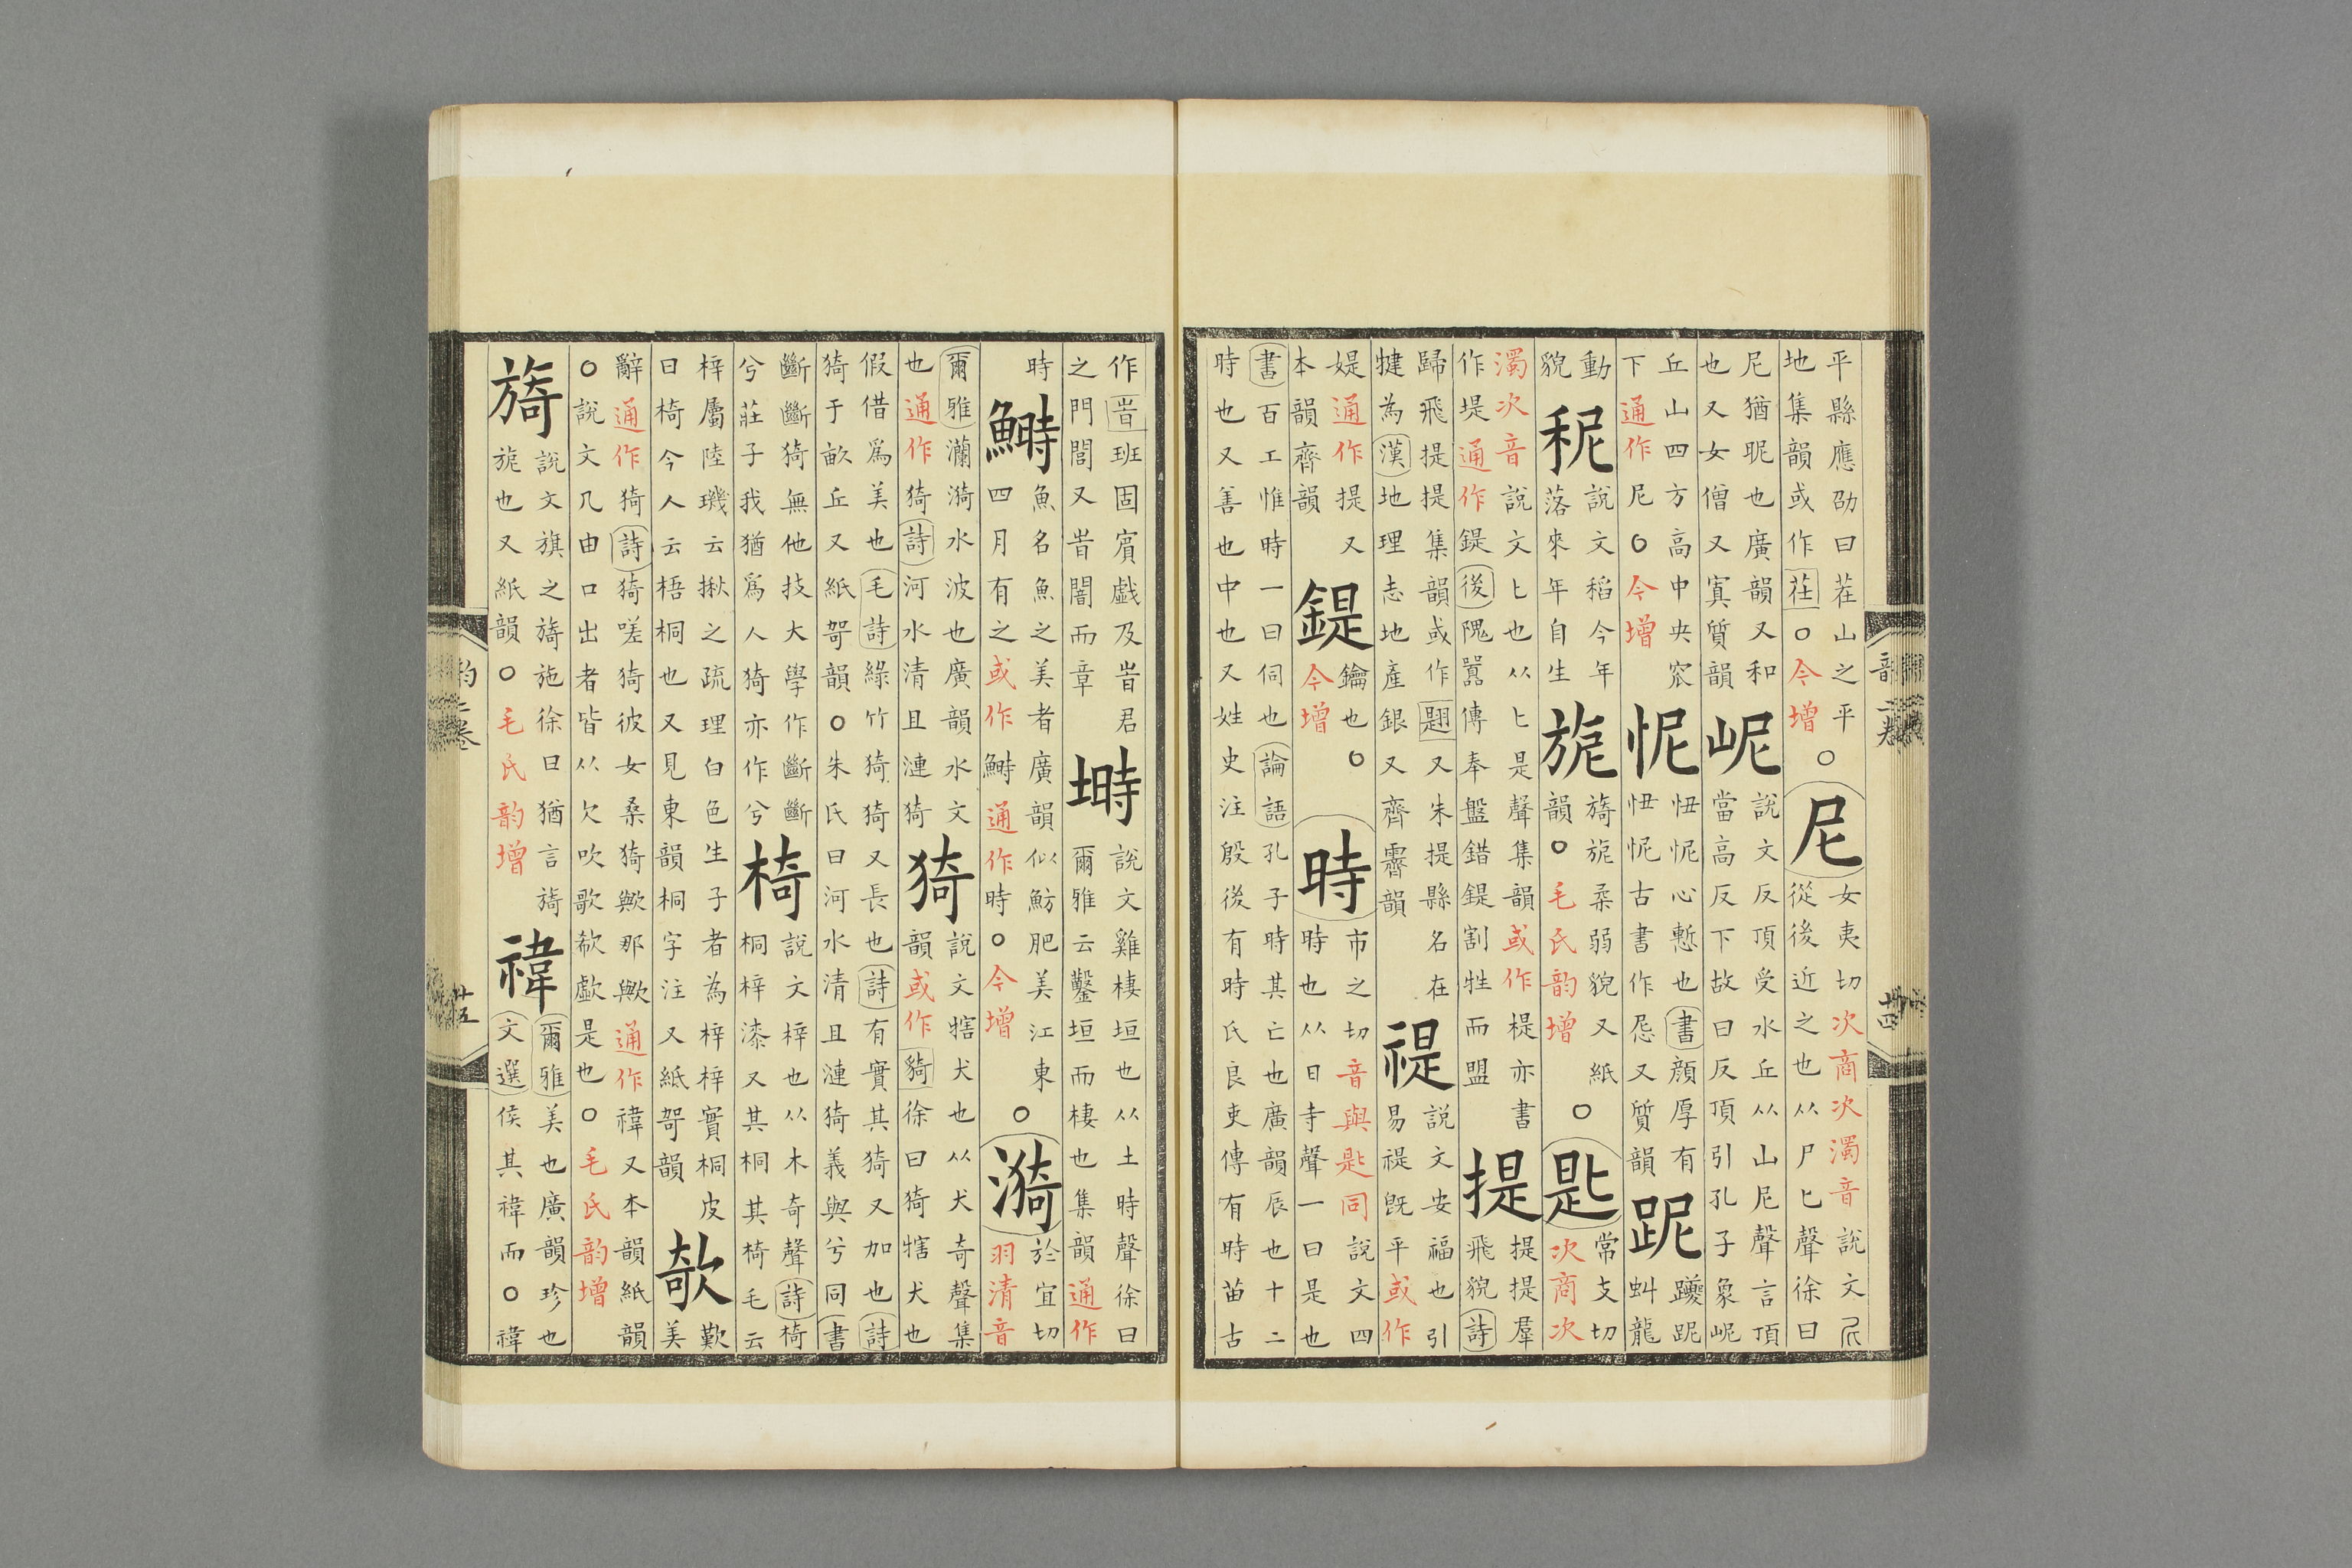 平縣應劭曰茬山之平
地集韻或作茌○今增
○尼
女夷切次商次濁音說文
從後近之也从尸匕聲徐曰
尼猶昵也廣韻又和
也又女僧又寘質韻
屔
說文反頂受水丘从山尼聲言頂
當高反下故曰反頂引孔子象屔
丘山四方高中央窊
下通作尼○今增
怩
忸怩心慙也書顏厚有
忸怩古書作㞾又質韻
跜
躨跜
虯龍
動
貌
秜
說文稻今年
落來年自生
旎
旖旎柔弱貌又紙
韻○毛氏韵增
○匙
常支切
次商次
濁次音說文匕也从匕是聲集韻或作㮛亦書
作堤通作鍉後隗囂傳奉盤錯鍉割牲而盟
提
提提羣
飛貌詩
歸飛提提集韻或作翄又朱提縣名在
犍為漢地理志地產銀又齊霽韻
禔
說文安福也引
易禔既平或作
媞通作提又
本韻齊韻
鍉
鑰也○
今增
時
市之切音與匙同說文四
時也从日寺聲一曰是也
書百工惟時一曰伺也論語孔子時其亡也廣韻辰也十二
時也又善也中也又姓史注殷後有時氏良吏傳有時苗古
韻二卷
廿四
作旹班固賓戲及旹君
之門閭又旹闇而章
塒
說文雞棲垣也从土時聲徐曰
爾雅云鑿垣而棲也集韻通作
時
鰣
魚名魚之美者廣韻似魴肥美江東
四月有之或作鰣通作時○今增
○漪
於宜切
羽清音
爾雅灡漪水波也廣韻水文
也通作猗詩河水清且漣猗
猗
說文犗犬也从犬奇聲集
韻或作㺔徐曰猗犗犬也
假借爲美也毛詩綠竹猗猗又長也詩有實其猗又加也詩
猗于畝丘又紙哿韻○朱氏曰河水清且漣猗義與兮同書
斷斷猗無他技大學作斷斷
兮莊子我猶爲人猗亦作兮
椅
說文梓也从木奇聲詩椅
桐梓漆又其桐其椅毛云
梓屬陸璣云揪之疏理白色生子者為梓梓實桐皮
曰椅今人云梧桐也又見東韻桐字注又紙哿韻
欹
歎
美
辭通作猗詩猗嗟猗彼女桑猗歟那歟通作禕又本韻紙韻
○說文凡由口出者皆从欠吹歌欷歔是也○毛氏韵增
旖
說文旗之旖施徐曰猶言旖
旎也又紙韻○毛氏韵增
禕
爾雅美也廣韻珍也
文選侯其禕而○禕
韵二卷
廿五